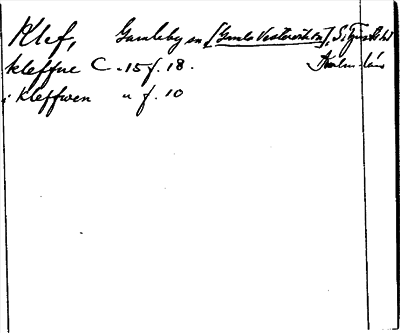 Klef, Gamleby sn [Gamla Vestervik sn], S. Tjust hd
kleffue C-15 f. 18. Kalm. län
i Kleffwen " f. 10